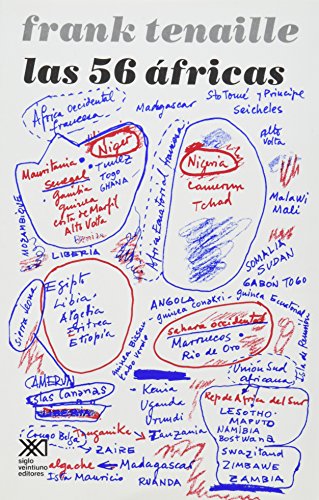 frank tenaille
las 56 áfricas
Africa occidental
francesa
Madagascar
Sto Tomé y Principe
Seicheles
Niger
Mauritania
Tunez
Senegal
TOGO
gambia
GHANA
guinea
costa de Marfil
Alto Volta
MOZAMBIQUE
LIBERIA
Africa Ecuatorial francesa
Nigeria
Camerun
Tchad
Alto
Volta
Malawi
Mali
SOMALIA
SUDAN
GABON TOGO
sierra leona
Egipto
Libia
Algelia
Eritrea
Etiopia
ANGOLA
guinea conakri
guinea Ecuatorial
sahara occidental
Marruecos
Rio de Oro
Guinea Bissau
Cabo Verde
Isla de Reunion
Union Sud
africana
Rep de Africa del Sur
LESOTHO
MAPUTO
NAMIBIA
BOSTWANA
Swaziland
ZIMBAWE
ZAMBIA
CAMERUN
Islas Canarias
LIBERIA
Kenia
Ugande
Urundi
Congo Belga
Tanzania
ZAIRE
Madagascar
Isla Mauricio
RUANDA
siglo
veintiuno
editores